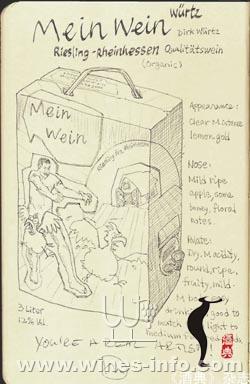 Mein Wein Würtz
Dirk Würtz
Riesling-Rheinhessen Qualitätswein
(Organic)
Mein
Wein
Riesling für Weltmeister
Appearance:
Clear M.
lemon gold
Nose:
Mild ripe
apple, some
honey, floral
notes.
Palate:
Dry, M acidity,
round, ripe,
fruity, mild.
M
drink good to
match light to
medium
3 Liter
12% Vol
YOU'RE A REAL ARTIST
www.wines-info.com